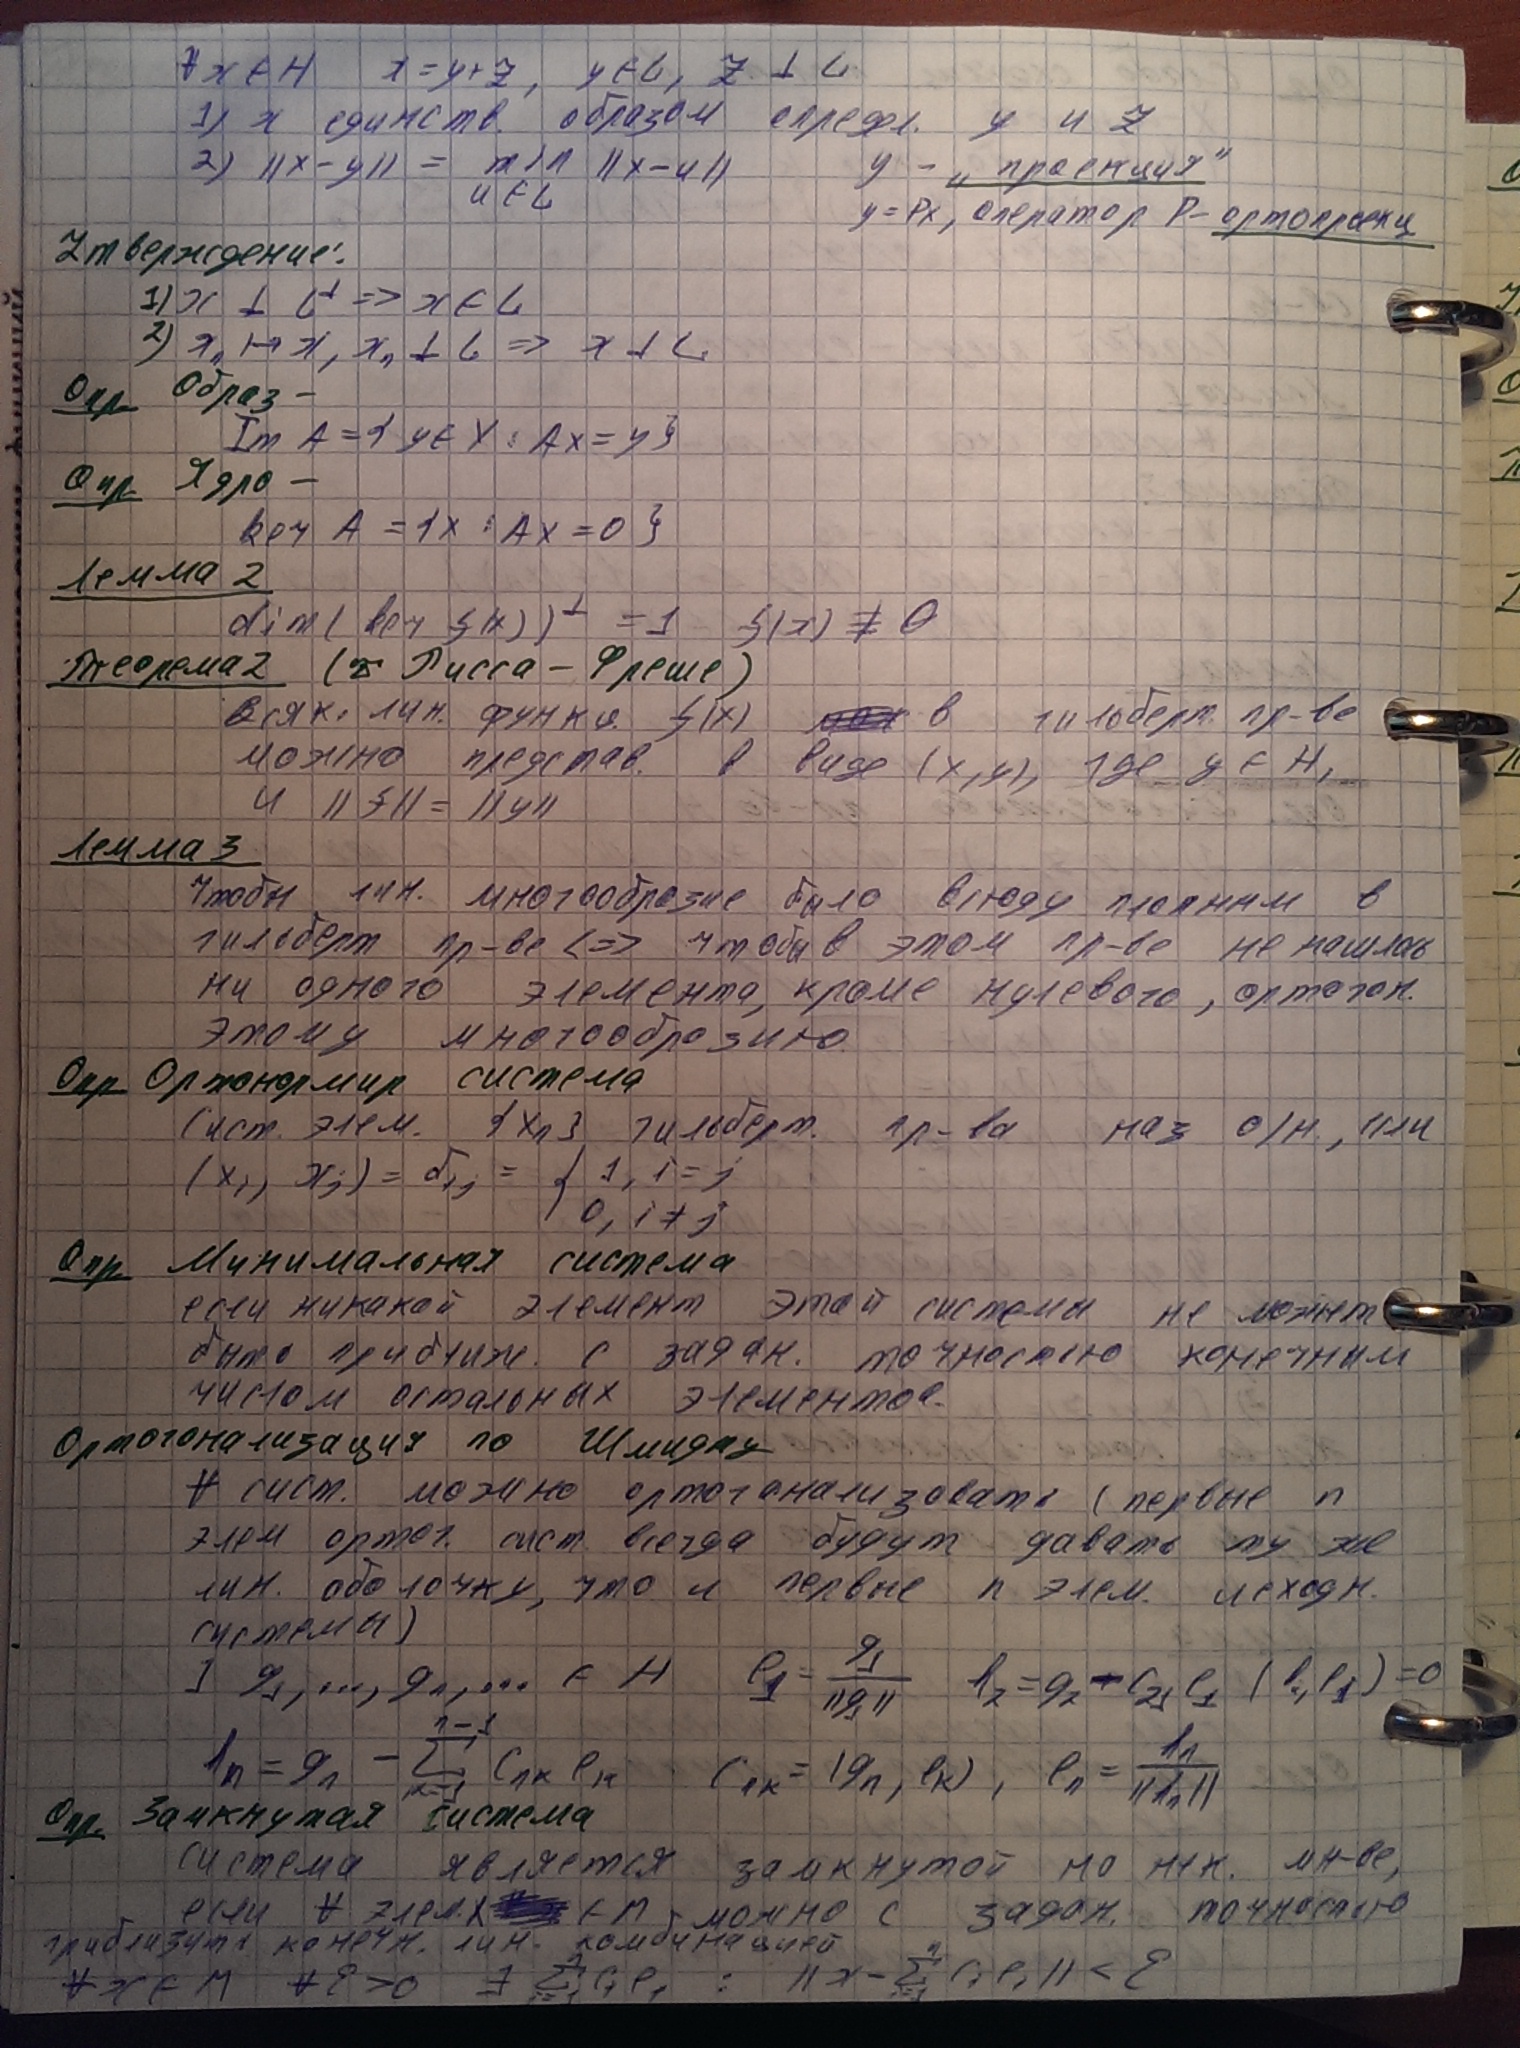 ∀ x ∈ H x = y + z, y ∈ L, z ⊥ L
1) x единств. образом опредл. y и z
2) ||x - y|| = min ||x - u|| y - „проекция"
u ∈ L
y = Px, оператор P - ортопроекц
Утверждение:
1) x ⊥ L^⊥ => x ∈ L
2) x_n ↦ x, x_n ⊥ L => x ⊥ L
Опр. Образ -
Im A = { y ∈ Y : Ax = y }
Опр. Ядро -
ker A = { x : Ax = 0 }
Лемма 2
dim ( ker f(x) )^⊥ = 1 f(x) ≢ 0
Теорема 2 ( Рисса - Фреше )
Всяк. лин. функц. f(x) в гильберт. пр-ве
можно представ. в виде (x, y), где y ∈ H,
и ||f|| = ||y||
Лемма 3
Чтобы лин. многообразие было всюду плотным в
гильберт пр-ве <=> чтобы в этом пр-ве не нашлось
ни одного элемента, кроме нулевого, ортогон.
этому многообразию.
Опр Ортонормир система
Сист. элем. {x_n} гильберт. пр-ва наз о/н., если
(x_i, x_j) = δ_ij = { 1, i = j
0, i ≠ j
Опр. Минимальная система
если никакой элемент этой системы не может
быть приближ. с задан. точностью конечным
числом остальных элементов.
Ортогонализация по Шмидту
∀ сист. можно ортогонализовать (первые n
элем ортог. сист. всегда будут давать ту же
лин. оболочку, что и первые n элем. исходн.
системы)
] g_1, ..., g_n, ... ∈ H e_1 = g_1 / ||g_1|| h_2 = g_2 - c_21 e_1 (h_2, e_1) = 0
h_n = g_n - ∑_{k=1}^{n-1} c_nk e_k c_nk = (g_n, e_k), e_n = h_n / ||h_n||
Опр. Замкнутая система
система является замкнутой на нек. мн-ве,
если ∀ элем. x ∈ M можно с задан. точностью
приблизить конечн. лин. комбинацией
∀ x ∈ M ∀ ε > 0 ∃ ∑_{i=1}^{n} c_i e_i : ||x - ∑_{i=1}^{n} c_i e_i || < ε